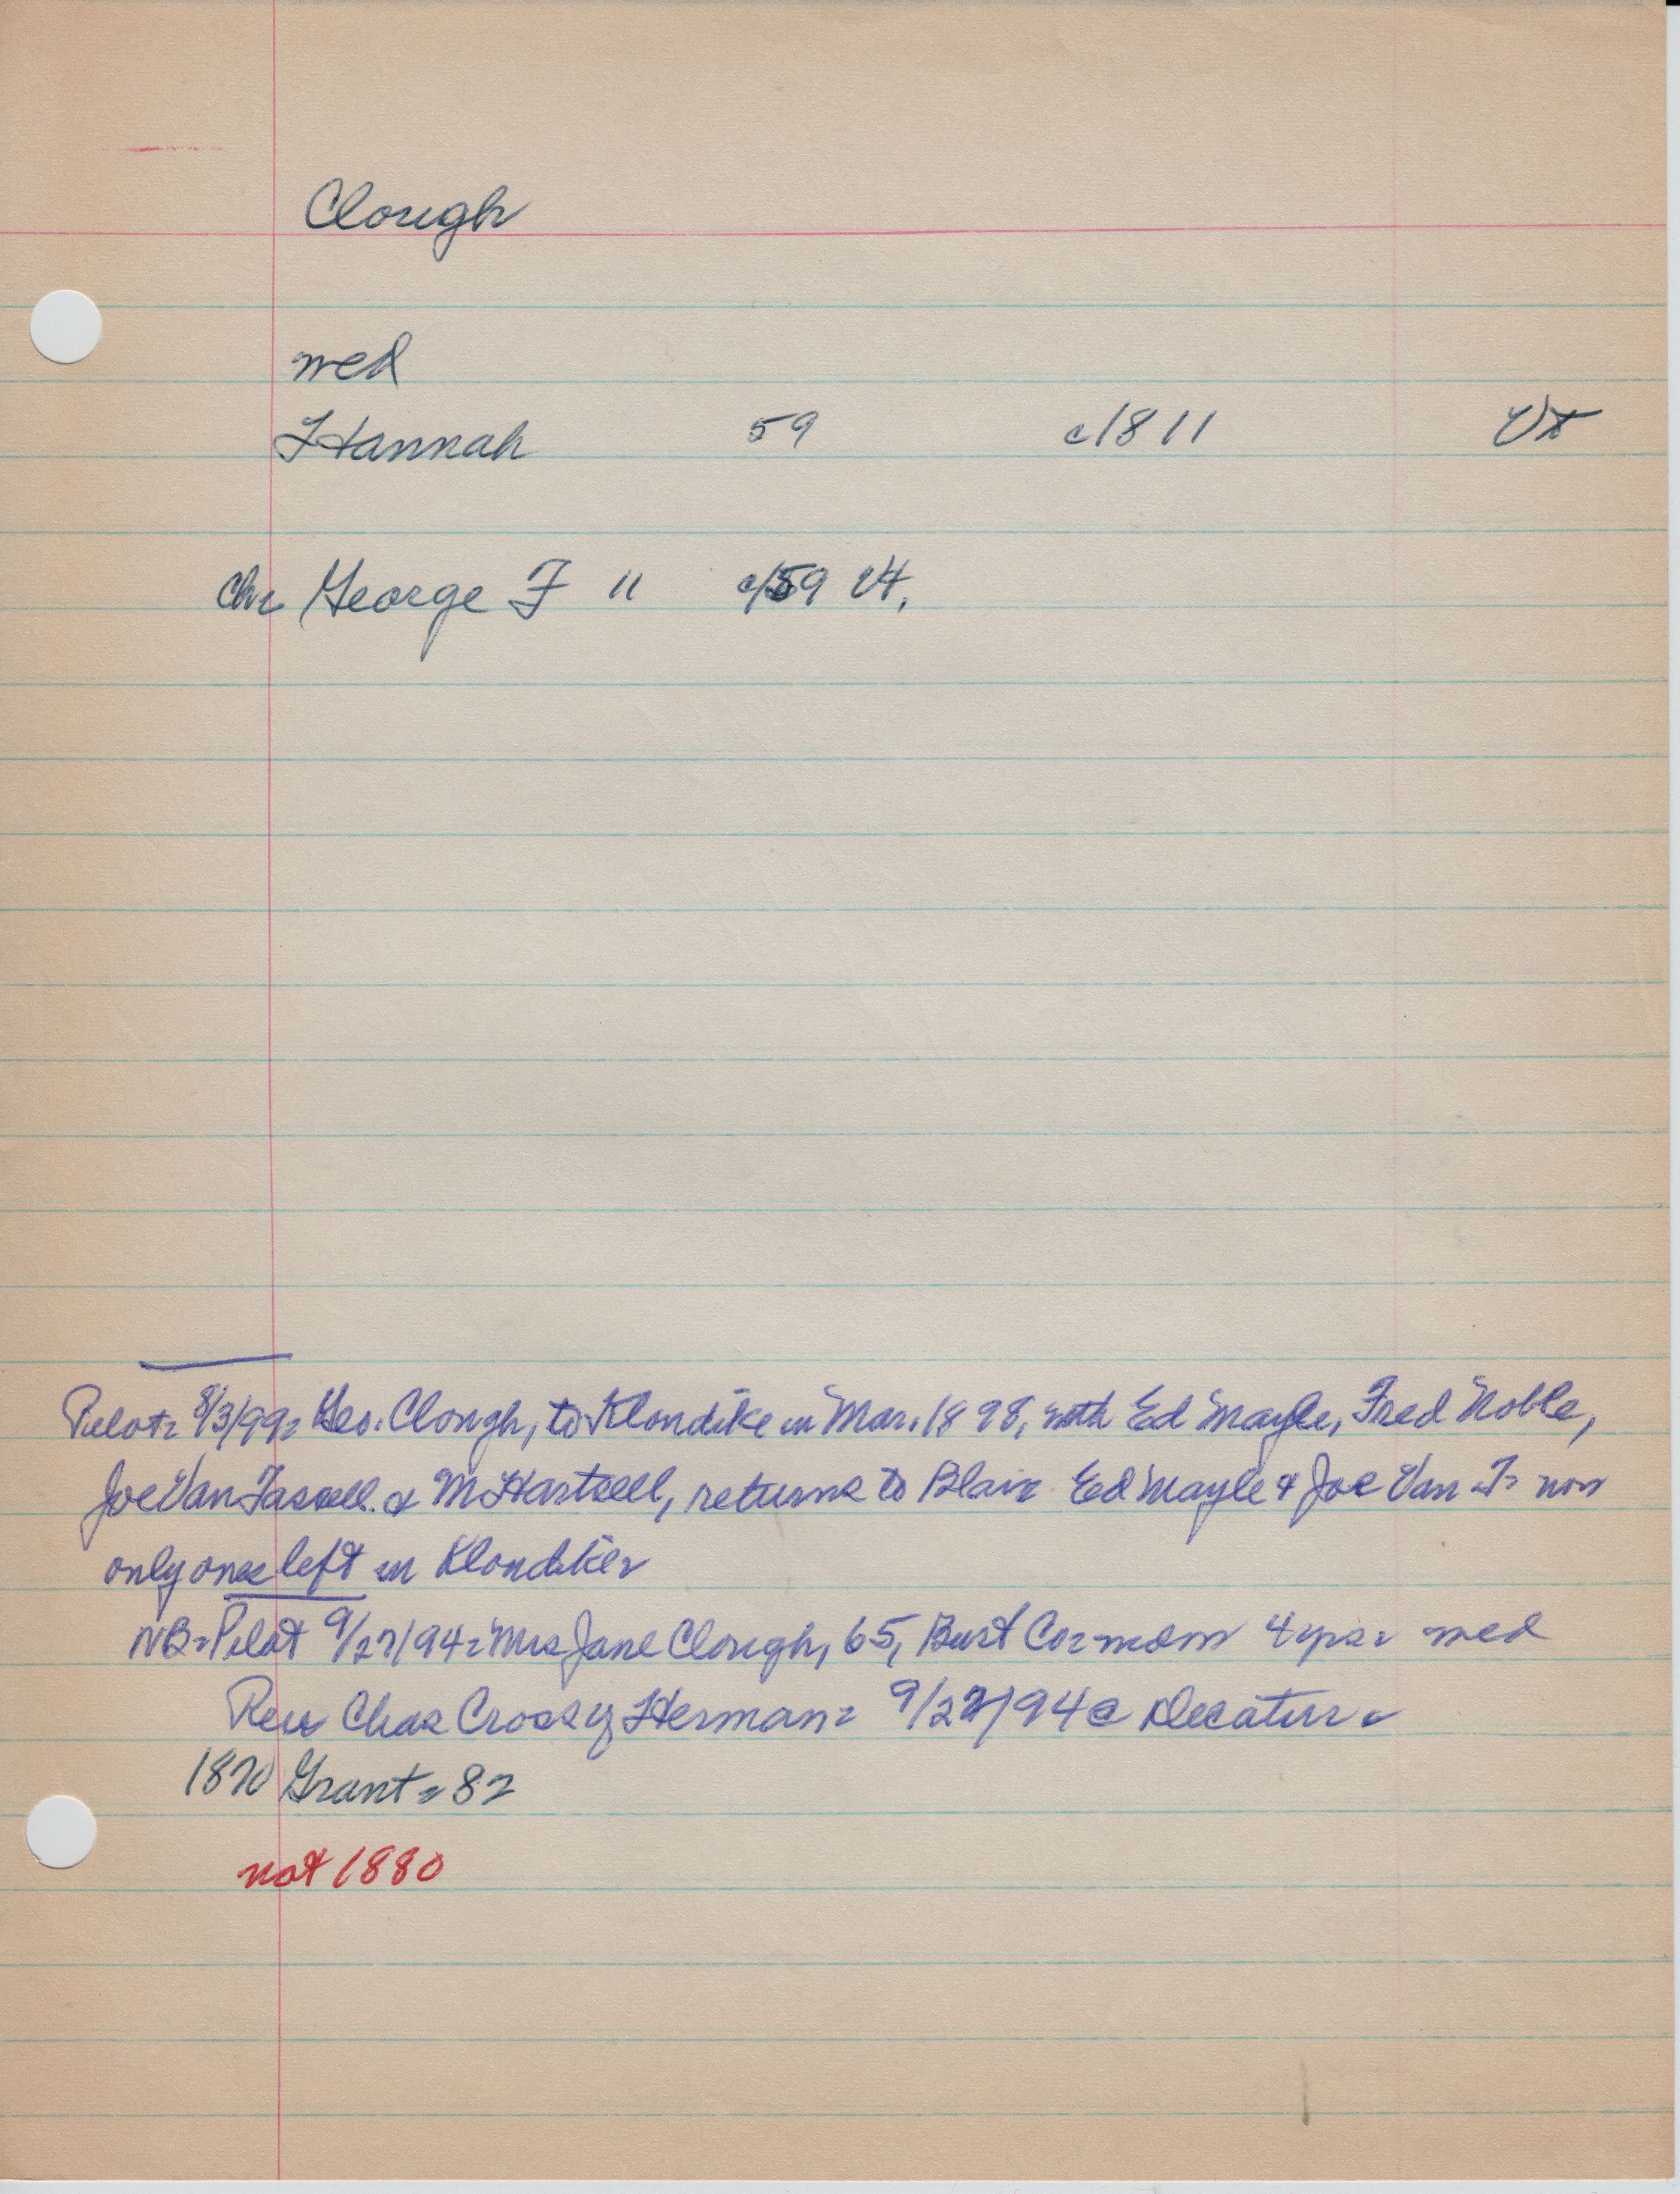 Clough
wed
Hannah 59 c1811 Vt
Ch= George F 11 c/59 Vt.
Pilot= 8/3/99= Geo. Clough, to Klondike in Mar. 1898, with Ed Mayle, Fred Noble,
Joe Van Tassell & M Hartsell, returns to Blair Ed Mayle & Joe Van T= now
only ones left in Klondike=
NB=Pilot 9/27/94= Mrs Jane Clough, 65, Burt Co= 4 yrs= wed
Rev Chas Cross of Herman= 9/22/94 @ Decatur=
1870 Grant=82
not 1880